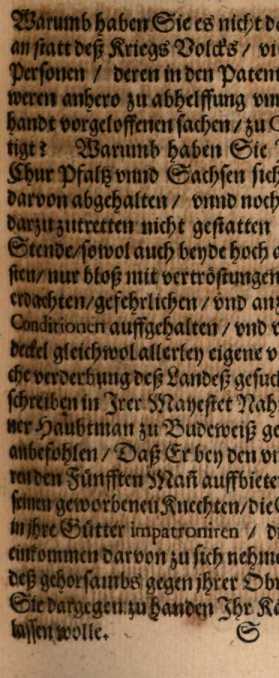 Warumb haben Sie es nicht d
an statt deß Kriegs Volcks / vi
Personen / deren in den Patent
weren anhero zu abhelffung vnn
handt vorgeloffenen sachen / zu C
tigt? Warumb haben Sie
Chur Pfaltz vnnd Sachsen sich
darvon abgehalten / vnnd noch
darzuzutretten nicht gestatten
Stende/sowol auch beyde hoch
sten/ nur bloß mit vertröstungen
erdachten/gefehrlichen / vnd an
Conditionen auffgehalten / vnd
deckel gleichwol allerley eigene v
che verderbung deß Landeß gesuc
schreiben in Irer Mayestet Nah
ner Haubtman zu Budeweiß ge
anbefohlen / Daß Er bey den vn
ten den Fünfften Mañ auffbiete
seinen geworbenen Knechten/die
in jhre Gütter impatroniren / d
einkommen darvon zu sich nehme
deß gehorsambs gegen jhrer Obr
Sie dargegen zu handen Ihr Kä
lassen wolle. S